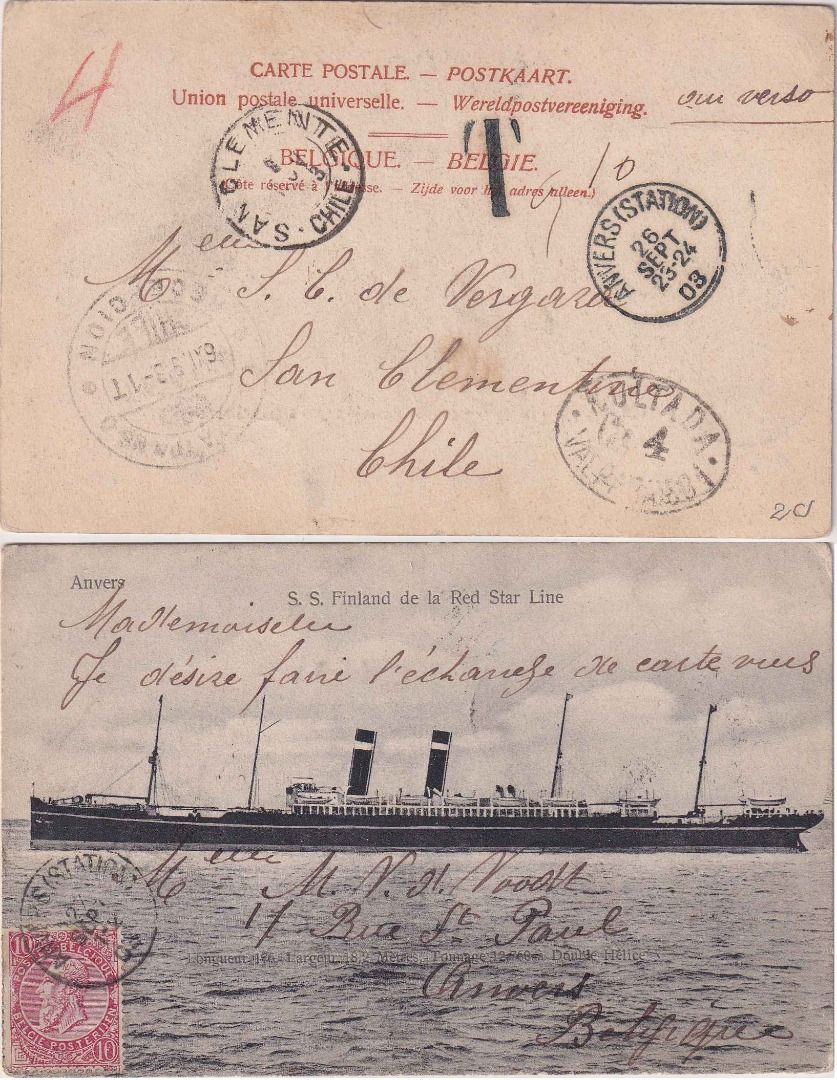 4
CARTE POSTALE. — POSTKAART.
Union postale universelle. — Wereldpostvereeniging.
au verso
BELGIQUE. — BELGIE.
(Côté réservé à l'adresse. — Zijde voor het adres alleen.)
T
10
SAN CLEMENTE · CHILE ·
ANVERS (STATION)
26
SEPT
23-24
03
Melle S. C. de Vergara
San Clementine
Chile
CONCEPCION
CHILE
MULTADA
4
VALPARAISO
Anvers
S. S. Finland de la Red Star Line
Mademoiselle
Je désire faire l'échange de carte vues
Melle M. V. d. Voodt
17 Rue St. Paul
Longueur 176, Largeur 18,2 Mètres, Tonnage 12,760, Double Hélice
Anvers
Belgique
ANVERS (STATION)
10 10
POSTES BELGIQUE
BELGIE POSTERIJEN
10 10